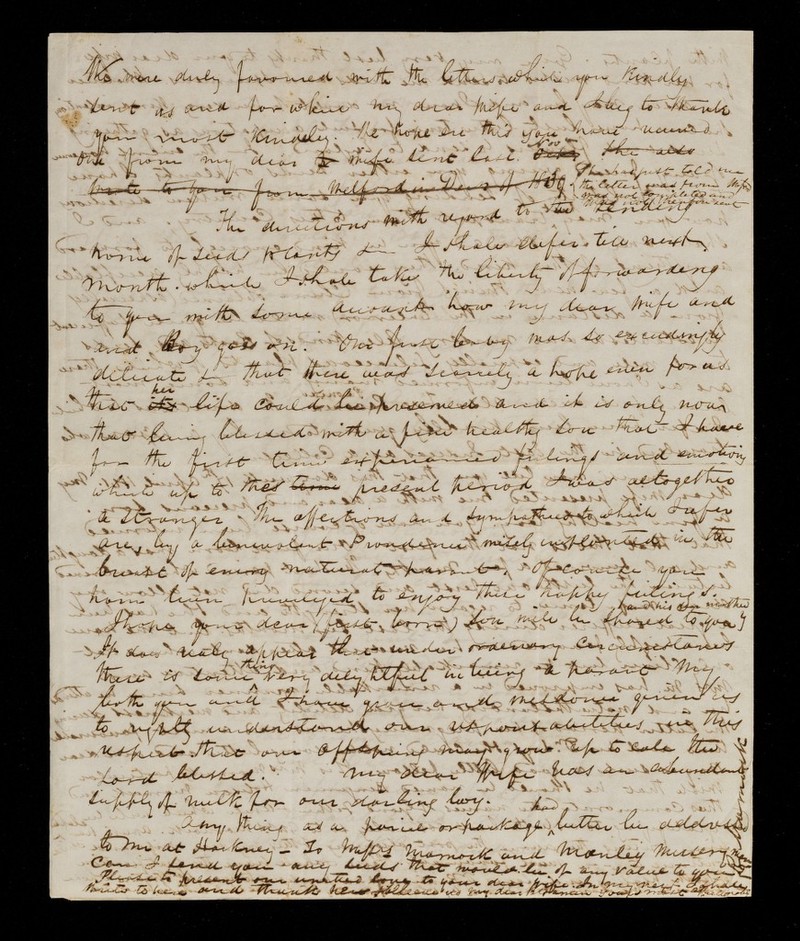 We were duly favoured with the letters which you kindly
sent us and for which my dear wife and I beg to thank
you most kindly. We hope ere this you have received
one from my dear wife sent last Nov she also
wrote to you from Melford in Decr of 18 She has just told me
the letter was from
was not completed and
was not therefore sent
The directions with regard to the sending
home of seeds plants &c I shall defer till next
month. which I shall take the liberty of forwarding
to you with some account how my dear wife and
and Boy goes on. Our first baby was so exceedingly
delicate &c that there was scarcely a hope even for us
that its her life could be preserved and it is only now
that being blessed with a fine healthy son that I have
for the first time experienced feelings and emotions
which up to the time present period I was altogether
a stranger. The affections and sympathies to which I refer
are, by a benevolent Providence wisely implanted in the
breast of every natural parent, of course you
have been privileged to enjoy these happy feelings.
I hope your dear (first born) son will be spared to you and his dear mother
It does realy appear that under ordinary circumstances
there is something very delightful in being a parent May
both you and I have grace and wisdom given us
to rightly understand our responsabilities in this
respect that our offspring may grow up to call the
Lord blessed. My dear Wife has an abundant
supply of milk for our darling boy.
Any thing as a parcel or package had better be addressed
to me at Hackney - To Messrs Warnock and Manley Nursery
Can I send you any seeds that would be of any value to you
Please to present our united love to your dear wife. In my next I shall
write to her and thank her